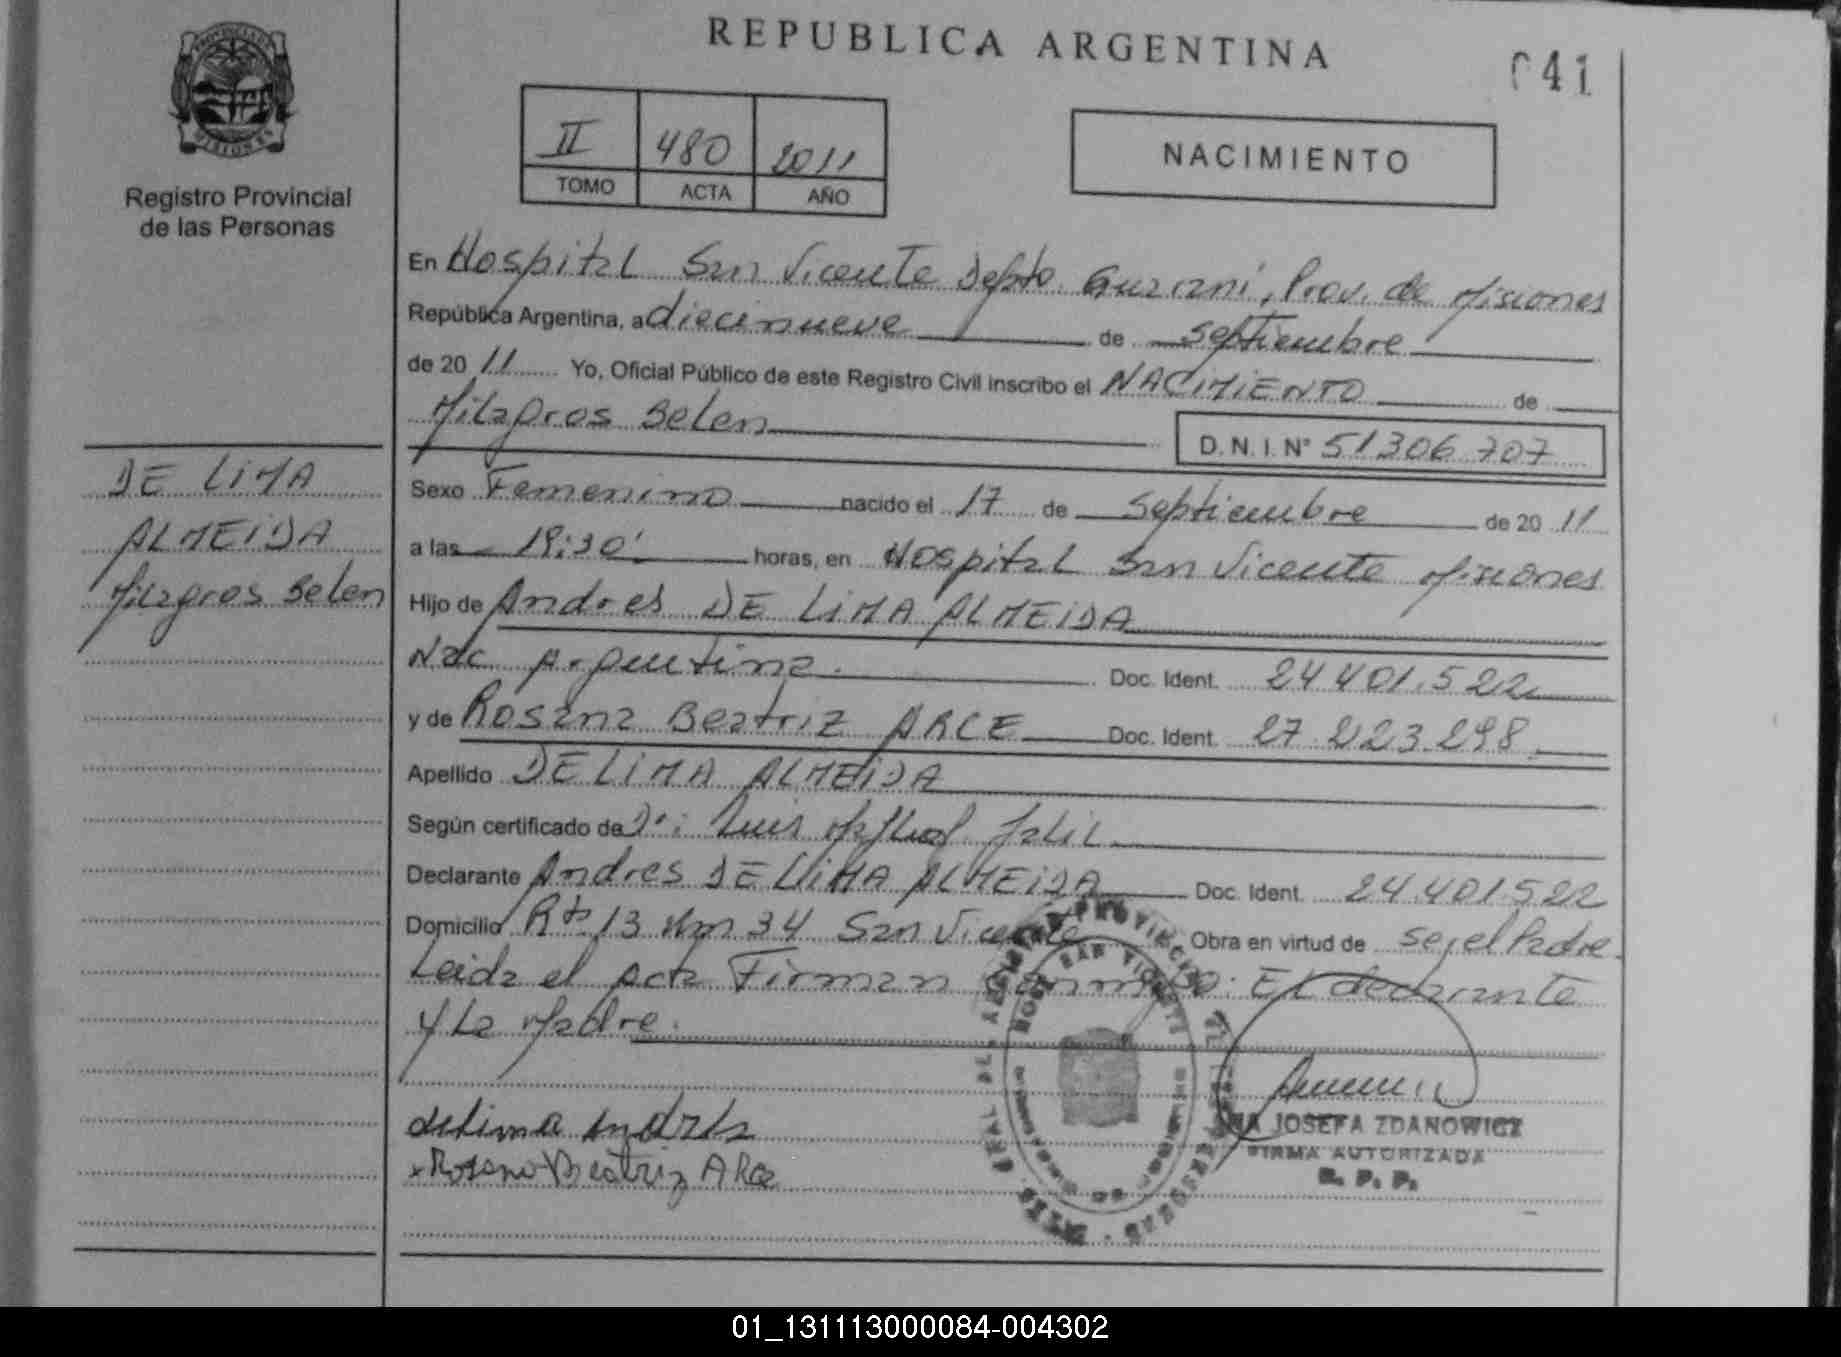 PROVINCIA DE
MISIONES
Registro Provincial
de las Personas
DE LIMA
ALMEIDA
Milagros Belen
REPUBLICA ARGENTINA
041
II 480 2011
TOMO ACTA AÑO
NACIMIENTO
En Hospital San Vicente Depto. Guarani, Prov. de Misiones
República Argentina, a diecinueve de septiembre
de 20 11 Yo, Oficial Público de este Registro Civil inscribo el NACIMIENTO de
Milagros Belen D.N.I. N° 51306707
Sexo Femenino nacido el 17 de Septiembre de 20 11
a las horas, en Hospital San Vicente Misiones
Hijo de Andres DE LIMA ALMEIDA
Nac. Argentina. Doc. Ident. 24.401.522
y de Rosana Beatriz ARCE Doc. Ident. 27.223.298
Apellido DE LIMA ALMEIDA
Según certificado de Dr: Luis Jalil
Declarante Andres DE LIMA ALMEIDA Doc. Ident. 24.401.522
Domicilio Rta 13 Km 34 San Vicente Obra en virtud de ser el Padre.
Leida el acta Firman conmigo: El declarante
y la Madre.
delima Andres
x Rosana Beatriz Arce
JOSEFA ZDANOWICZ
FIRMA AUTORIZADA
R. P. P.
01_131113000084-004302